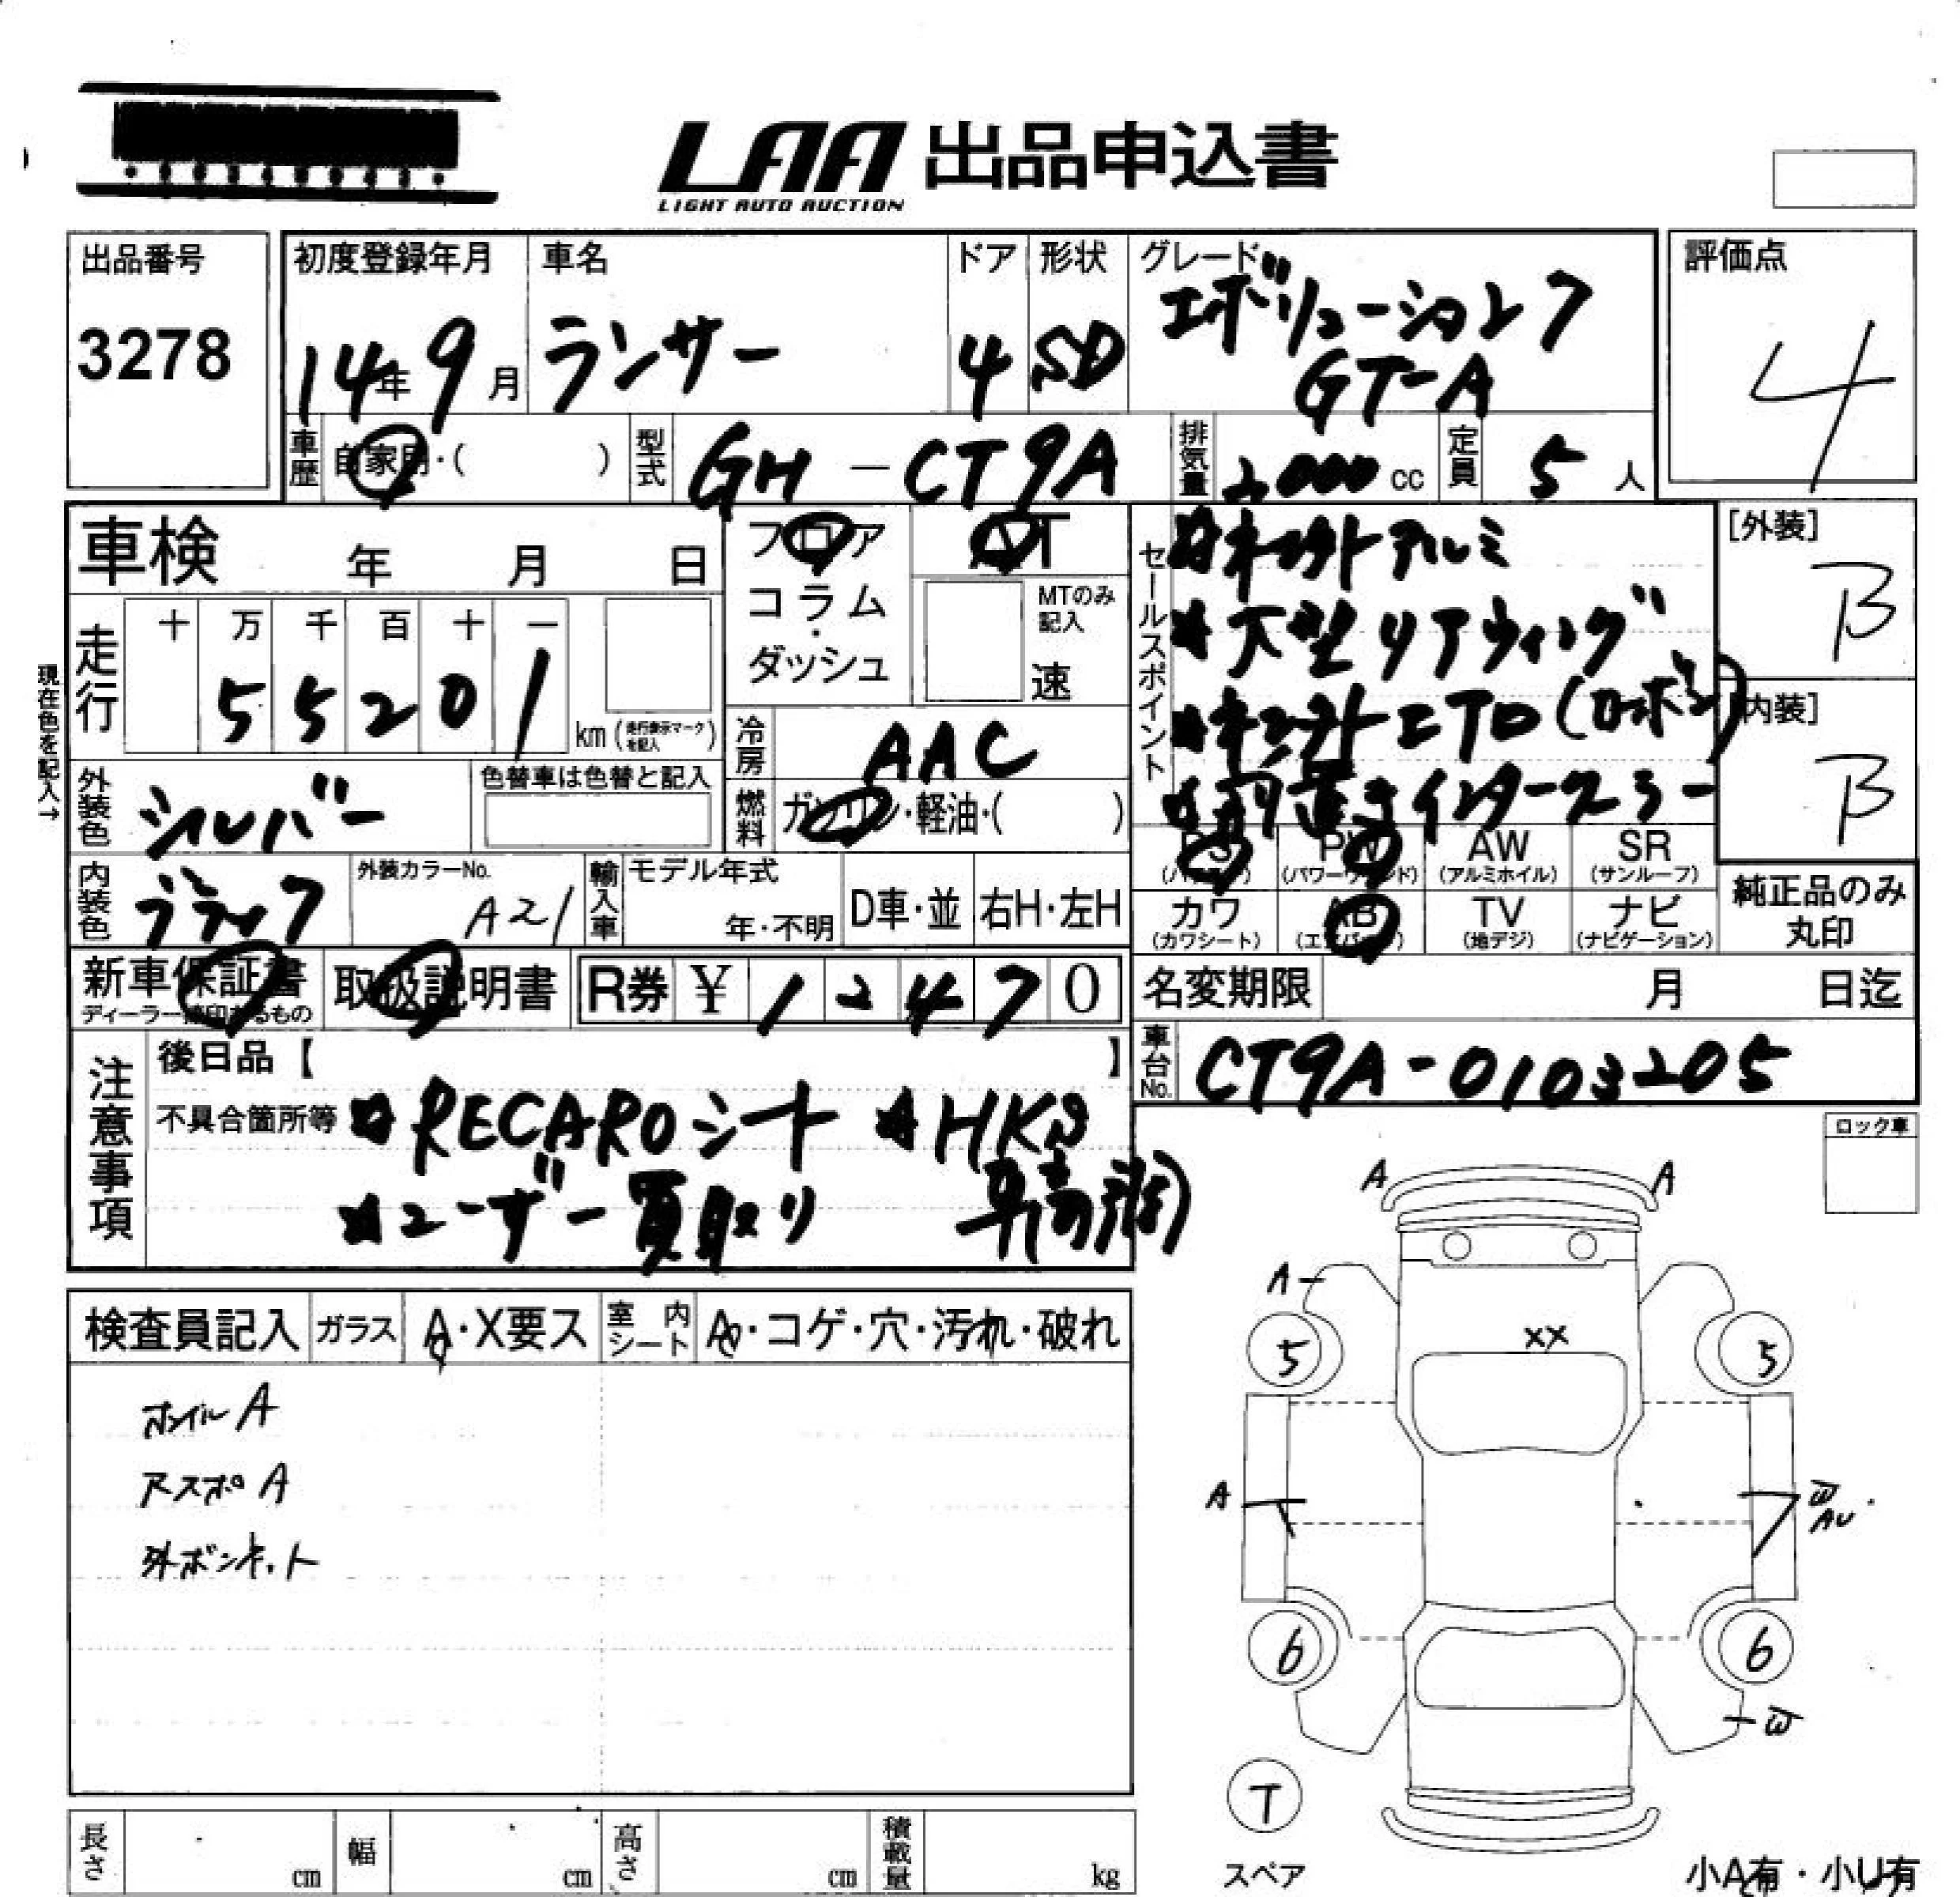 LAA 出品申込書
LIGHT AUTO AUCTION
出品番号
3278
初度登録年月
14年 9月
車名
ランサー
ドア
4
形状
SD
グレード
エボリューション7
GT-A
評価点
4
車歴 自家用・( )
型式 GH - CT9A
排気量 2000 cc
定員 5 人
車検 年 月 日
フロア
コラム
・
ダッシュ
AT
MTのみ記入
速
セールスポイント
☆ アルミ
☆大型リアウィング
☆
☆前置きインタークーラー
[外装]
B
内装]
B
走行 十 万 千 百 十 一
5 5 2 0 1
km (走行表示マークを記入)
現在色を記入→
冷房 AAC
燃料 ガソリン・軽油・( )
外装色 シルバー
色替車は色替と記入
内装色 ブラック
外装カラーNo.
A21
輸入車
モデル年式
年・不明
D車・並
右H・左H
PS PW AW SR
(パワステ) (パワーウィンド) (アルミホイル) (サンルーフ)
カワ AB TV ナビ
(カワシート) (エアバッグ) (地デジ) (ナビゲーション)
純正品のみ
丸印
新車保証書
ディーラー捺印あるもの
取扱説明書
R券 ¥ 1 2 4 7 0
名変期限 月 日迄
車台No. CT9A-0103205
注意事項
後日品【 】
不具合箇所等 ☆RECAROシート ☆HKS
☆ユーザー買取り 車高調
ロック車
検査員記入 ガラス A・X要ス 室内シート A・コゲ・穴・汚れ・破れ
ホイルA
アスポA
外ボンネット
A A
A
XX
5 5
A
W
AU
6 6
W
T
スペア
小A有・小U有
長さ cm 幅 cm 高さ cm 積載量 kg